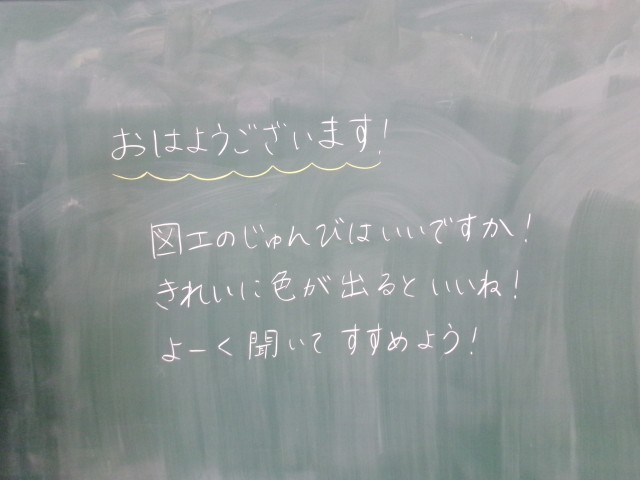 おはようございます!
図工のじゅんびはいいですか!
きれいに色が出るといいね!
よーく聞いてすすめよう!